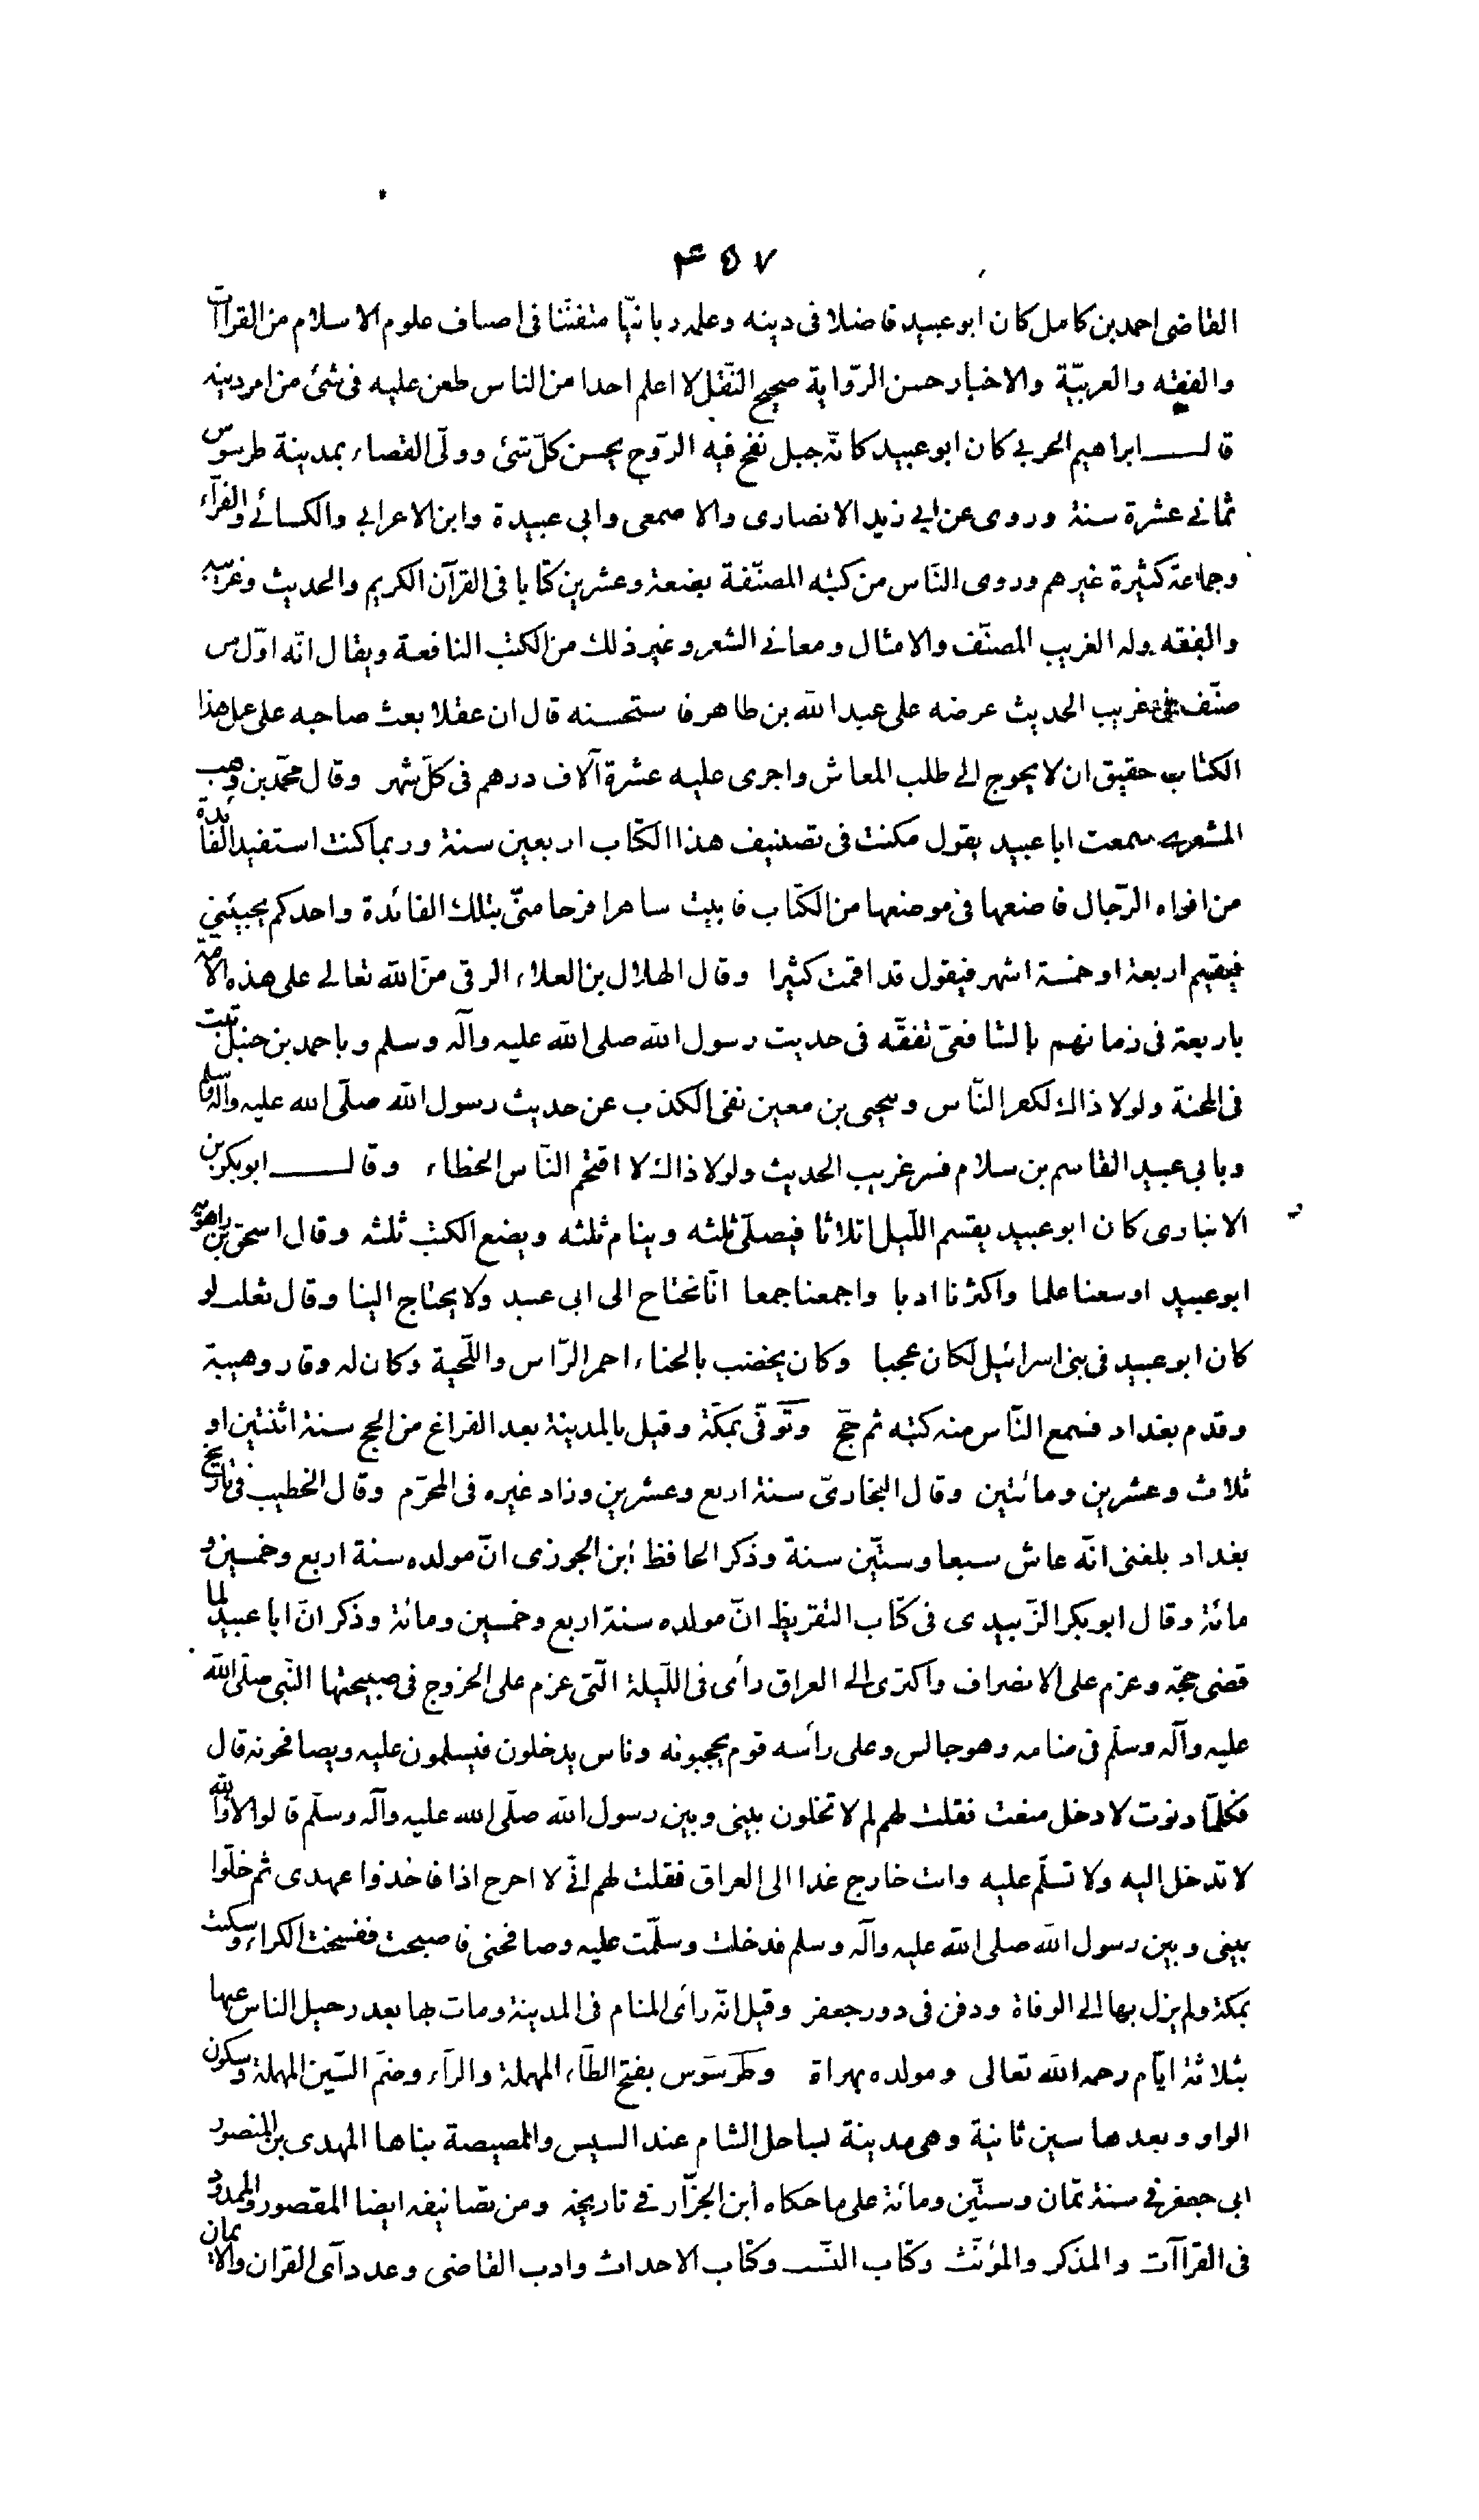 ۴۵۷
القاضى احمد بن كامل كان ابو عبيد فاضلا فى دينه وعلمه ربانيّا متفنّنا فى اصناف علوم الاسلام من القراآت
والفقه والعربيّة والاخبار حسن الرّواية صحيح النّقل لا اعلم احدا من الناس طعن عليه فى شئ من امر دينه
قال ابراهيم الحربى كان ابو عبيد كانّه جبل نفخ فيه الرّوح يحسن كلّ شئ وولّى القضاء بمدينة طرسوس
ثمانى عشرة سنة وروى عن ابى زيد الانصارى والاصمعى وابى عبيدة وابن الاعرابى والكسائى والفرّاء
وجماعة كثيرة غيرهم وروى النّاس من كتبه المصنّفة بضعة وعشرين كتابا فى القرآن الكريم والحديث وغريبه
والفقه وله الغريب المصنّف والامثال ومعانى الشعر وغير ذلك من الكتب النافعة ويقال انّه اوّل من
صنّف فى غريب الحديث عرضه على عبد الله بن طاهر فاستحسنه قال ان عقلا بعث صاحبه على عمل هذا
الكتاب حقيق ان لا يحوج الى طلب المعاش واجرى عليه عشرة آلاف درهم فى كلّ شهر وقال محمّد بن وهب
المشعرى سمعت ابا عبيد يقول مكنت فى تصنيف هذا الكتاب اربعين سنة وربما كنت استفيد الفائدة
من افواه الرّجال فاضعها فى موضعها من الكتاب فابيت ساهرا فرحا منّى بتلك الفائدة واحدكم يجيئنى
فيقيم اربعة او خمسة اشهر فيقول قد اقمت كثيرا وقال الهلال بن العلاء الرقى منّ الله تعالى على هذه الامّة
باربعة فى زمانهم بالشافعىّ تفقّه فى حديث رسول الله صلى الله عليه وآله وسلم وباحمد بن حنبل ثبت
فى المحنة ولولا ذاك لكفر النّاس ويحيى بن معين نفى الكذب عن حديث رسول الله صلّى الله عليه وآله وسلم
وبابى عبيد القاسم بن سلام فسر غريب الحديث ولولا ذاك لا اقتحم النّاس الخطاء وقال ابو بكر بن
الانبارى كان ابو عبيد يقسم اللّيل اثلاثا فيصلّى ثلثه وينام ثلثه ويضع الكتب ثلثه وقال اسحق بن راهويه
ابو عبيد اوسعنا علما واكثرنا ادبا واجمعنا جمعا انّا نحتاج الى ابى عبيد ولا يحتاج الينا وقال ثعلب لو
كان ابو عبيد فى بنى اسرائيل لكان عجبا وكان يخضب بالحناء احمر الرّاس واللّحية وكان له وقار وهيبة
وقدم بغداد فسمع النّاس منه كتبه ثم حجّ وتوّفّى بمكّة وقيل بالمدينة بعد الفراغ من الحج سنة اثنتين او
ثلاث وعشرين ومائتين وقال البخارىّ سنة اربع وعشرين وزاد غيره فى المحرّم وقال الخطيب فى تاريخ
بغداد بلغنى انّه عاش سبعا وستّين سنة وذكر الحافظ ابن الجوزى انّ مولده سنة اربع وخمسين و
مائة وقال ابو بكر الزّبيدى فى كتاب التقريظ انّ مولده سنة اربع وخمسين ومائة وذكر انّ ابا عبيد لما
قضى حجّه وعزم على الانصراف واكترى الى العراق رأى فى اللّيلة الّتى عزم على الخروج فى صبيحتها النّبى صلّى الله
عليه وآله وسلّم فى منامه وهو جالس وعلى رأسه قوم يحجبونه وناس يدخلون فيسلمون عليه ويصافحونه قال
فكلّما دنوت لا دخل منعت فقلت لهم لم لا تخلون بينى وبين رسول الله صلّى الله عليه وآله وسلّم قالوا لا والله
لا تدخل اليه ولا تسلّم عليه وانت خارج غدا الى العراق فقلت لهم انّى لا اخرج اذا فاخذوا عهدى ثم خلّوا
بينى وبين رسول الله صلى الله عليه وآله وسلم فدخلت وسلّمت عليه وصافحنى فاصبحت ففسخت الكراء وسكنت
بمكة ولم يزل بها الى الوفاة ودفن فى دور جعفر وقيل انّه رأى المنام فى المدينة ومات بها بعد رحيل الناس عنها
بثلاثة ايّام رحمه الله تعالى ومولده بهراة وطَرَسَوُس بفتح الطّاء المهملة والرّاء وضمّ السّين المهملة وسكون
الواو وبعدها سين ثانية وهى مدينة لساحل الشام عند السيس والمصيصة بناها المهدى بن المنصور
ابى جعفر فى سنة ثمان وستّين ومائة على ما حكاه ابن الجزّار فى تاريخه ومن تصانيفه ايضا المقصور والممدود
فى القراآت والمذكر والمؤنّث وكتاب النّسب وكتاب الاحداث وادب القاضى وعدد آى القران والايمان